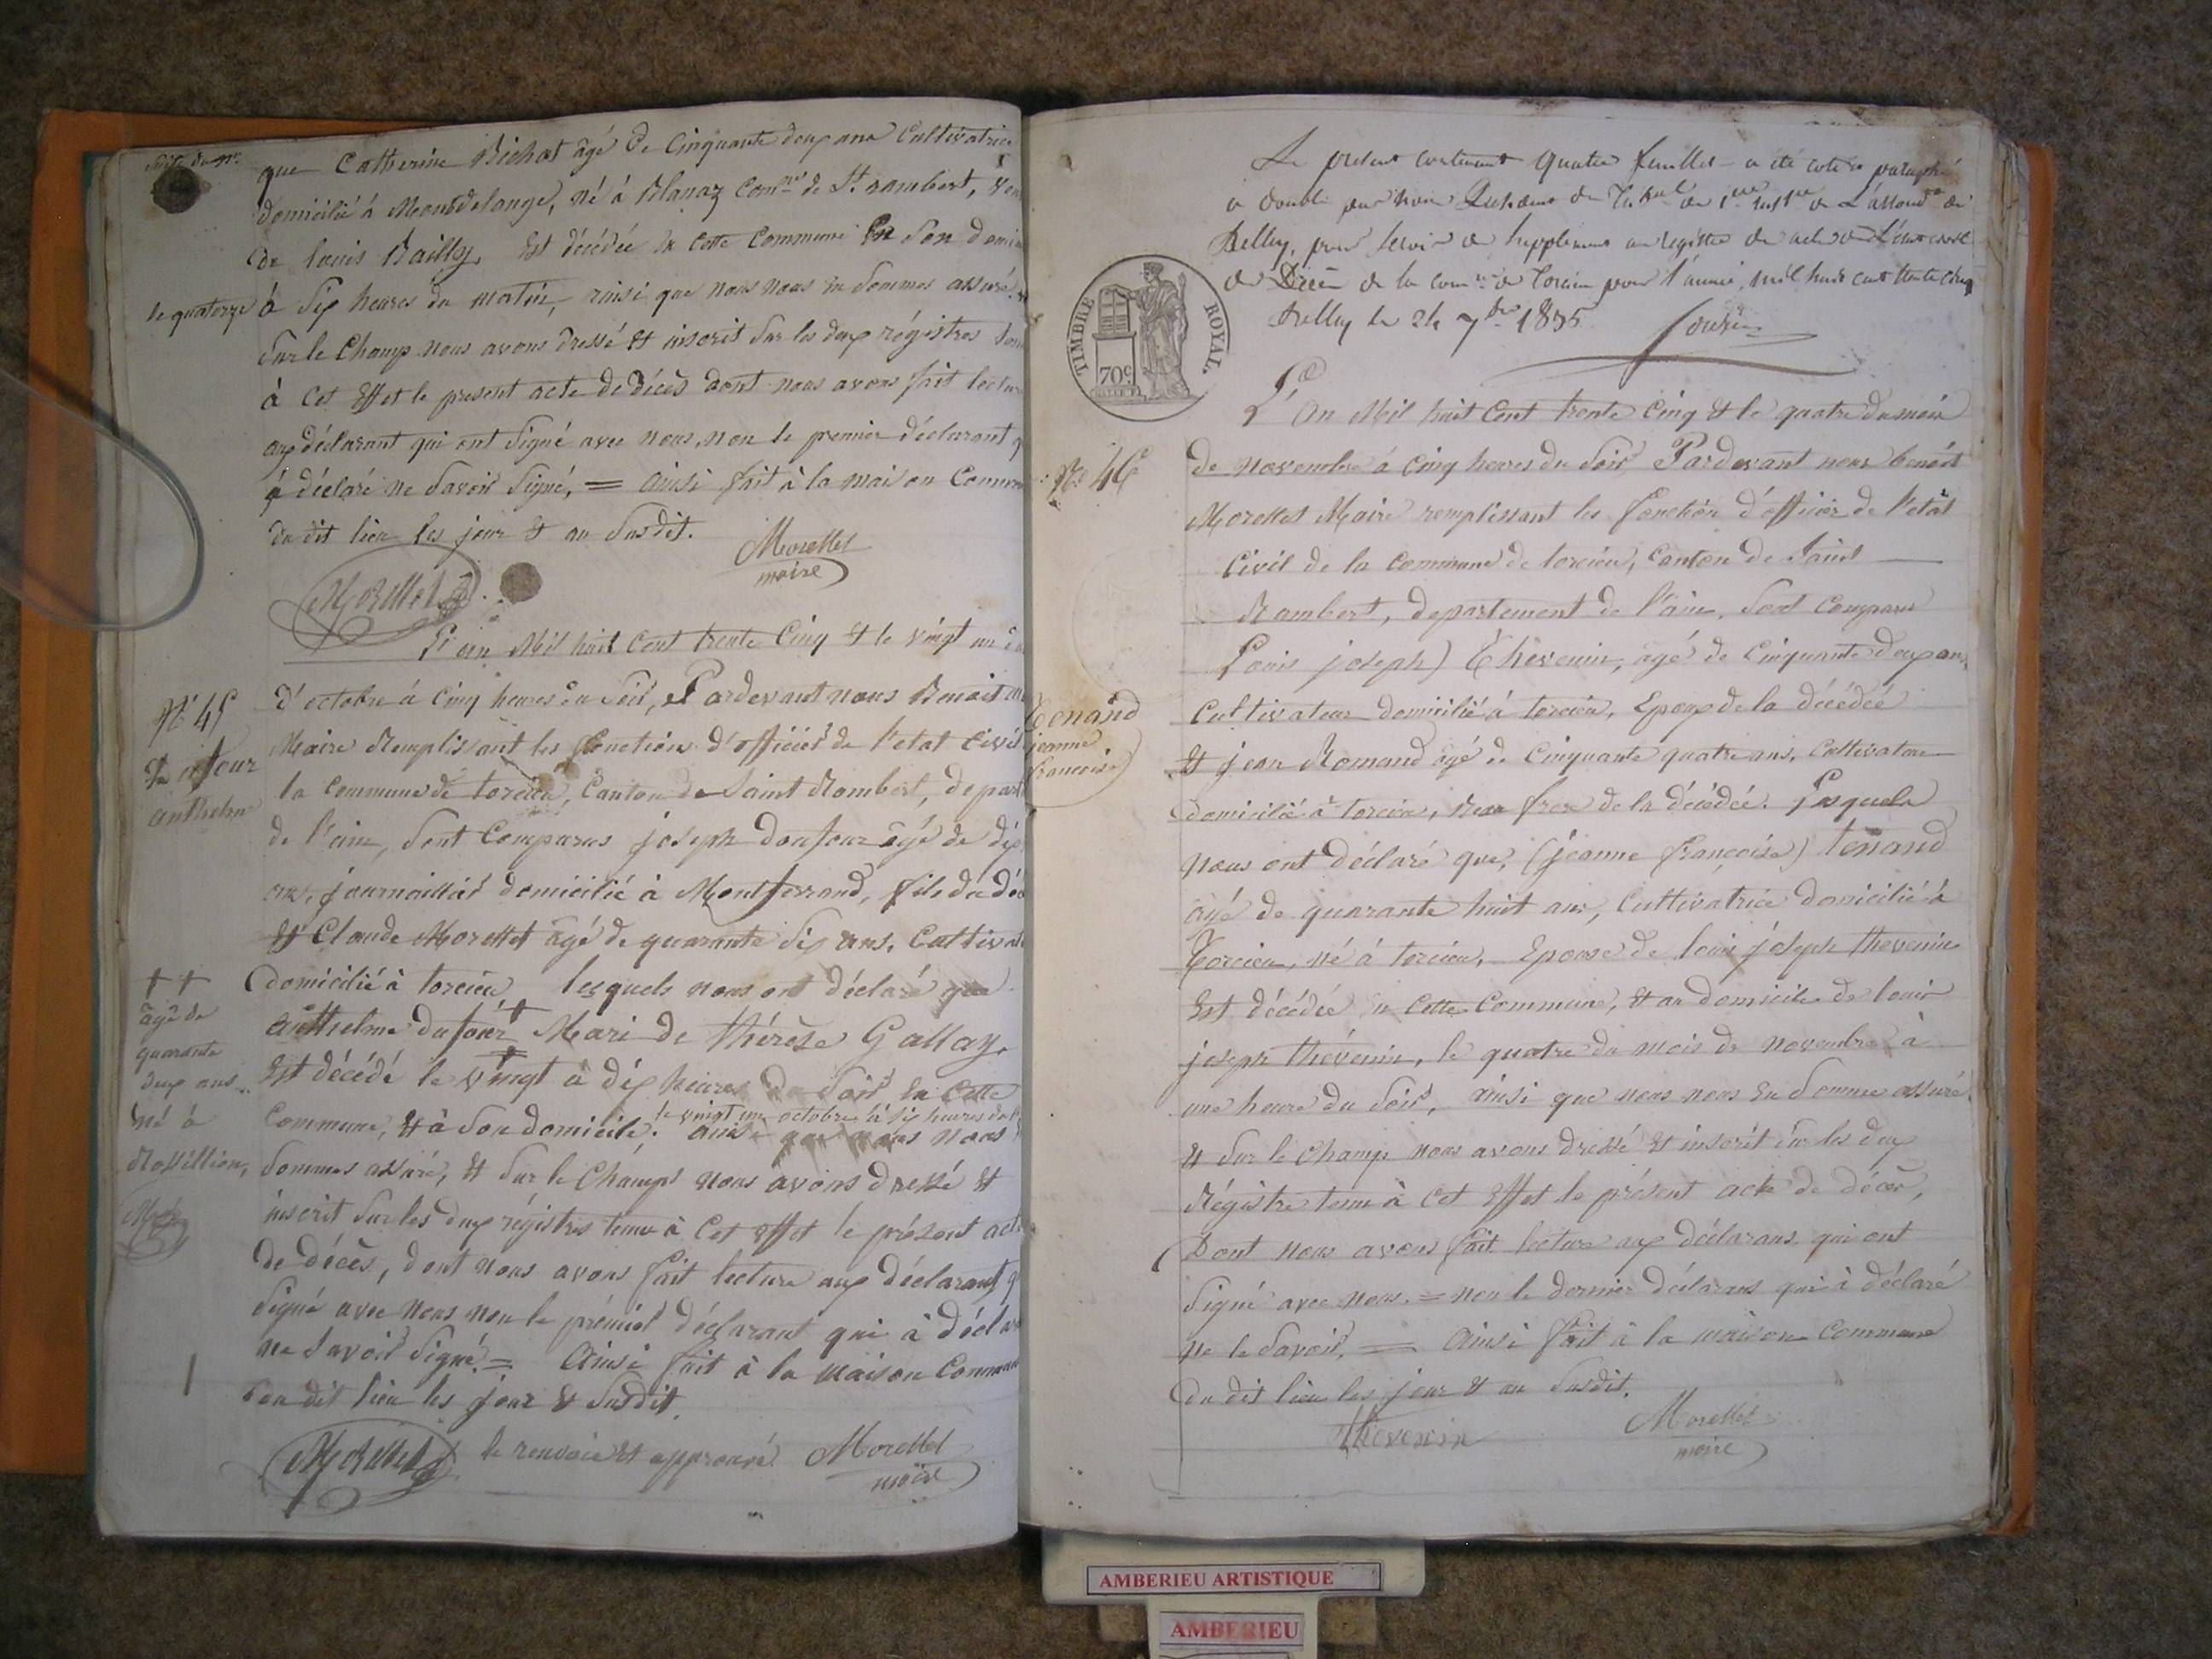 que Catherine Bichat âgé de Cinquante deux ans Cultivatrice
domicilié à Montdelange, né à Blanaz Comne de St rambert,
de louis Bailly, Est décédée en cette Commune En Son
le quatorze
à Six heures du matin, ainsi que nous nous en Sommes assuré
Sur le Champ nous avons dressé Et inscrit Sur les deux régistres
à Cet Effet le present acte de décès dont nous avons fait
aux déclarant qui ont Signé avec nous, non le premier déclarant
à déclaré ne Savoir Signé, = ainsi fait à la maison
du dit lieu les jour Et an Susdit.
Morellet
maire
N° 45
anthelme
L'an Mil huit Cent trente Cinq Et le vingt un
d'octobre à Cinq heures du Soir, Pardevant nous Benoit
Maire Remplissant les fonction d'officier de l'etat Civil
la Commune de torcieu, Canton de Saint Rambert,
de l'ain, Sont Comparus joseph doufour âgé de dix
ans, journaillier domicilié à Montferrand, fils du
Et Claude Morellet âgé de quarante Six ans,
domicilié à torcieu, lesquels nous ont déclaré que
anthelme dufour ++ Mari de thérèse Gallay,
Est décédé le vingt à dix heures du Soir En Cette
le vingt un octobre à Six heures
Commune, Et à Son domicile. ainsi que nous nous
Sommes assuré, Et Sur le Champ nous avons dressé Et
inscrit Sur les deux régistres tenue à Cet effet le présent
de décès, dont nous avons fait lecture aux déclarant
Signé avec nous non le prémier déclarant qui à
ne Savoir Signé. = Ainsi fait à la maison
du dit lieu les jour Et Susdit.
++
âgé de
quarante
deux ans
né à
Rossillion,
le renvoie Et approuvé
Morellet
maire
Le présent contenant quatre feuillet a été coté et paraphé
Belley, pour servir de Supplément au registre
de Décès de la comne de Torcieu pour l'année mil huit cent trente cinq
Belley le 24 7bre 1835
TIMBRE ROYAL
70c
N° 46
tenand
jeanne
françoise
L'an Mil huit Cent trente Cinq Et le quatre du mois
de novembre à Cinq heures du Soir Pardevant nous benoit
Morellet Maire remplissant les fonction d'officier de l'etât
Civil de la Commune de torcieu, Canton de Saint
Rambert, departement de l'ain, Sont Comparus
(Louis joseph) Thévenin, agé de Cinquante deux ans,
Cultivateur domicilié à torcieu, Epoux de la décédée
Et jean Romand âgé de Cinquante quatre ans, Cultivateur
domicilié à torcieu, beau frere de la décédée. Lesquels
nous ont déclaré que, (jeanne françoise) tenand
âgé de quarante huit ans, Cultivatrice domicilié à
Torcieu, né à torcieu, Epouse de louis joseph thevenin
Est décédée En Cette Commune, Et au domicile de louis
joseph thévenin, le quatre du mois de novembre à
une heure du Soir, ainsi que nous nous En Somme assuré
Et Sur le Champ nous avons dressé Et inscrit Sur les deux
Régistre tenu à Cet Effet le présent acte de décès,
Dont nous avons fait lecture aux déclarans qui ont
Signé avec nous. = non le dernier déclarans qui à déclaré
ne le Savoir. = Ainsi fait à la maison Commune
du dit lieu les jour Et an Susdit.
thevenin
Morellet
maire
AMBERIEU ARTISTIQUE
AMBERIEU